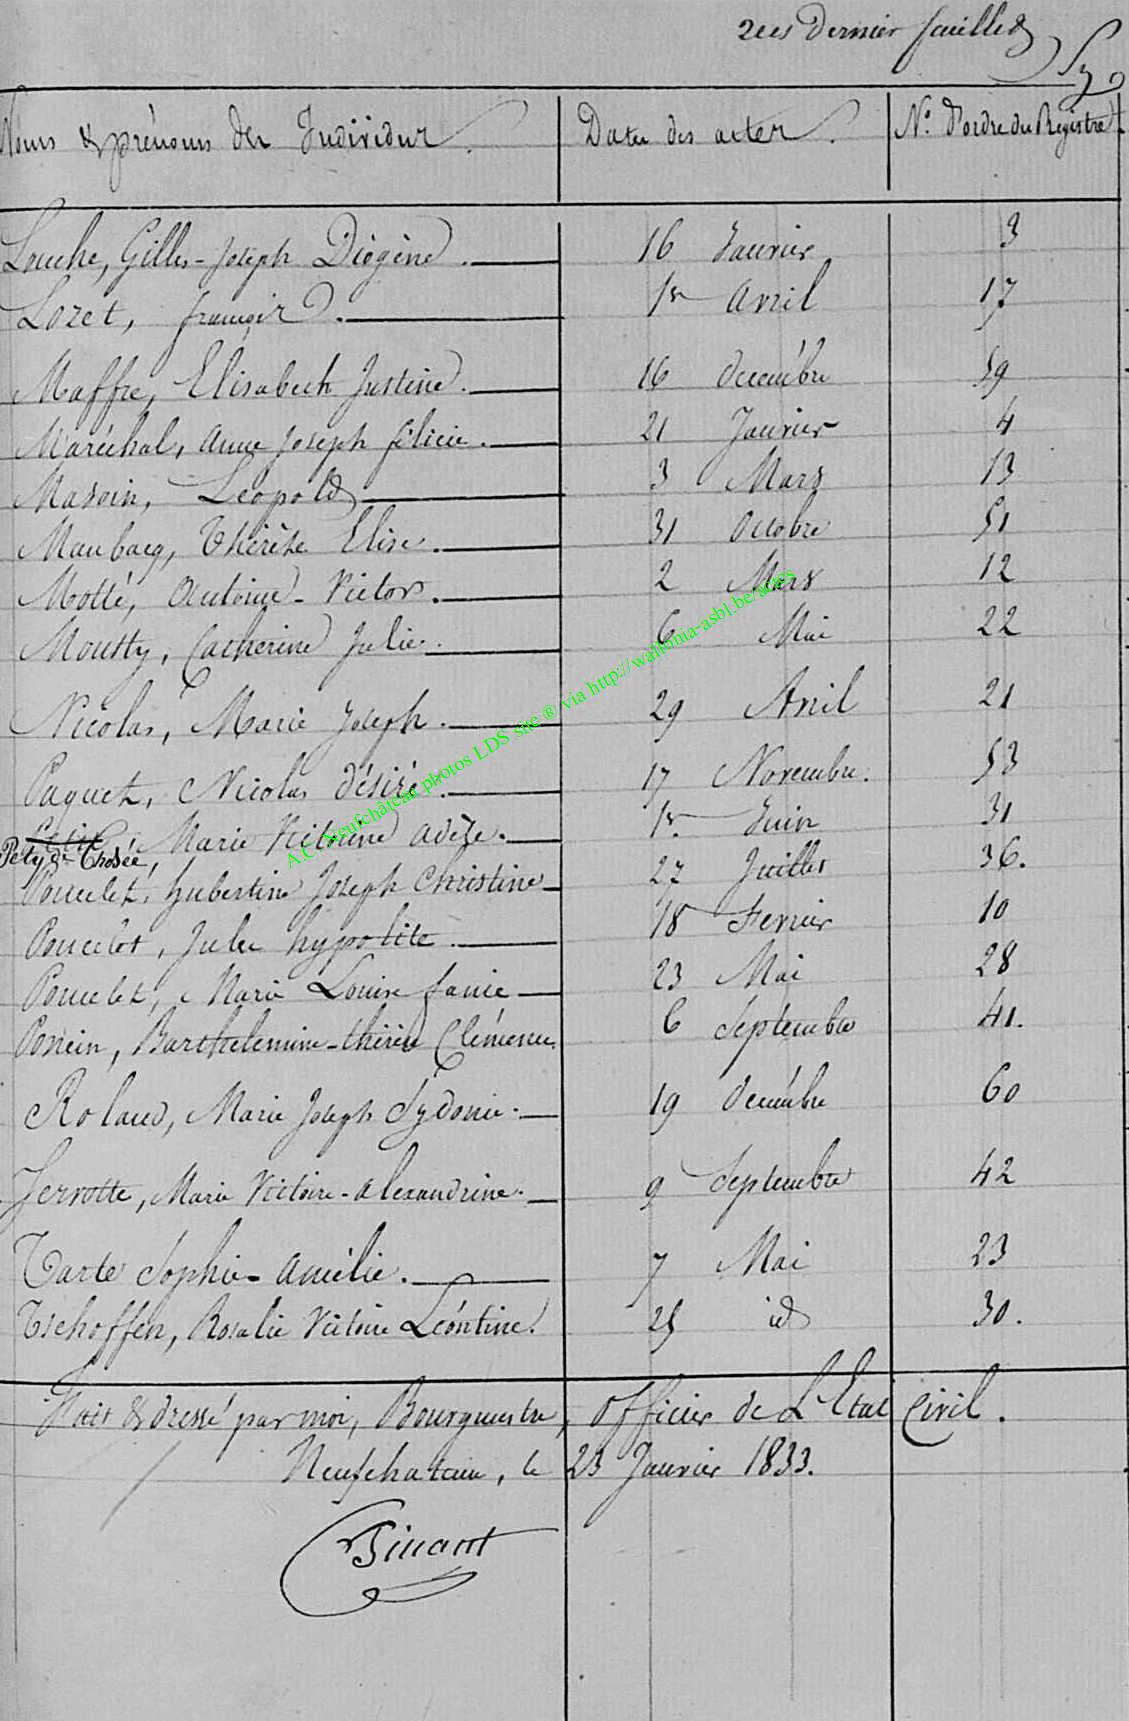 2ees Dernier feuillet
Noms & prénoms des Individus. Dates des actes. N.° d'ordre du Registre
Louche, Gilles-Joseph Diogène. 16 Janvier 3
Lozet, françois. 1er Avril 17
Maffre, Elisabeth Justine. 16 decémbre 59
Maréchal, Anne Joseph félicie. 21 Janvier 4
Masoin, Léopold 3 Mars 13
Maubacq, Thérèse Elise. 31 Octobre 51
Motté, Antoine-Victor. 2 Mars 12
Mousty, Catherine Julie. 6 Mai 22
Nicolas, Marie Joseph. 29 Avril 21
Paquet, Nicolas désiré. 17 Novembre. 53
Petit, Marie Victorine adèle. 1er Juin 31
Pety de Thosée,
Poncelet, hubertine Joseph Christine 27 Juillet 36.
Poncelet, Jules hypolite. 18 Fevrier 10
Poncelet, Marie Louise fanie 23 Mai 28
Poncin, Barthelemine-thérèse Clémence. 6 Septembre 41.
Roland, Marie Joseph Sydonie. 19 decémbre 60
Servotte, Marie Victoire-alexandrine. 9 Septembre 42
Tarte Sophie-Amélie. 7 Mai 23
Tschoffen, Rosalie Victoire Léontine. 25 id 30.
Fait & dressé par moi, Bourgmestre, officier de L'Etat Civil.
Neufchateau, le 23 Janvier 1833.
A.C. Neufchâteau photos LDS site ® via http://wallonia-asbl.be/actes